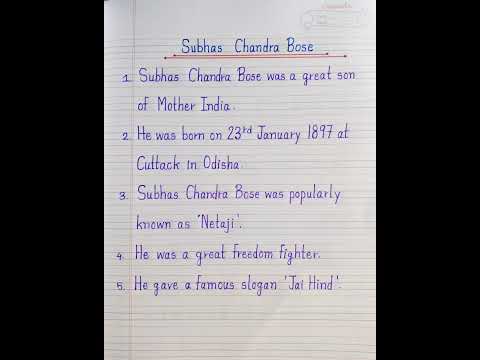 Subhas Chandra Bose
1. Subhas Chandra Bose was a great son
of Mother India.
2. He was born on 23rd January 1897 at
Cuttack in Odisha.
3. Subhas Chandra Bose was popularly
known as 'Netaji'.
4. He was a great freedom fighter.
5. He gave a famous slogan 'Jai Hind'.